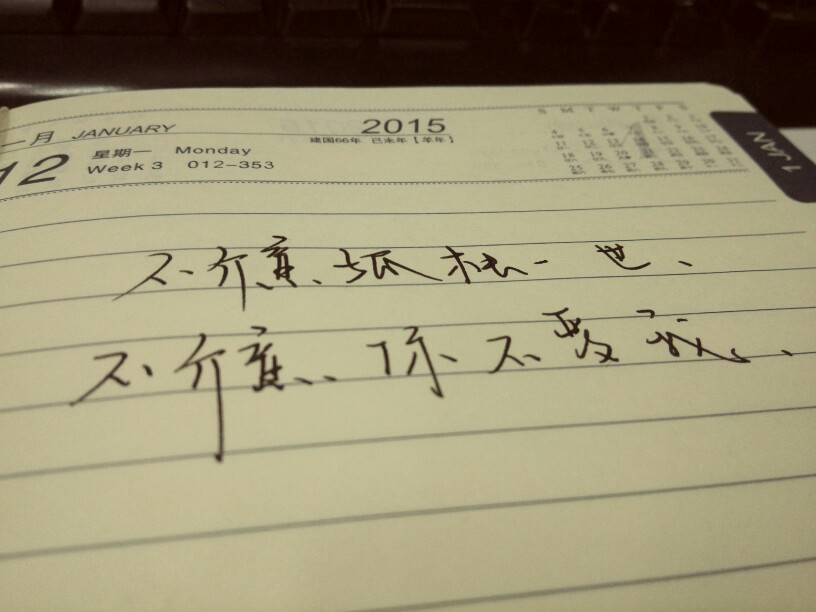 一月 JANUARY 2015
建国66年 己未年【羊年】
12 星期一 Monday
Week 3 012-353
S M T W T F S
1 JAN
不介意孤独一世、
不介意、你不爱我、